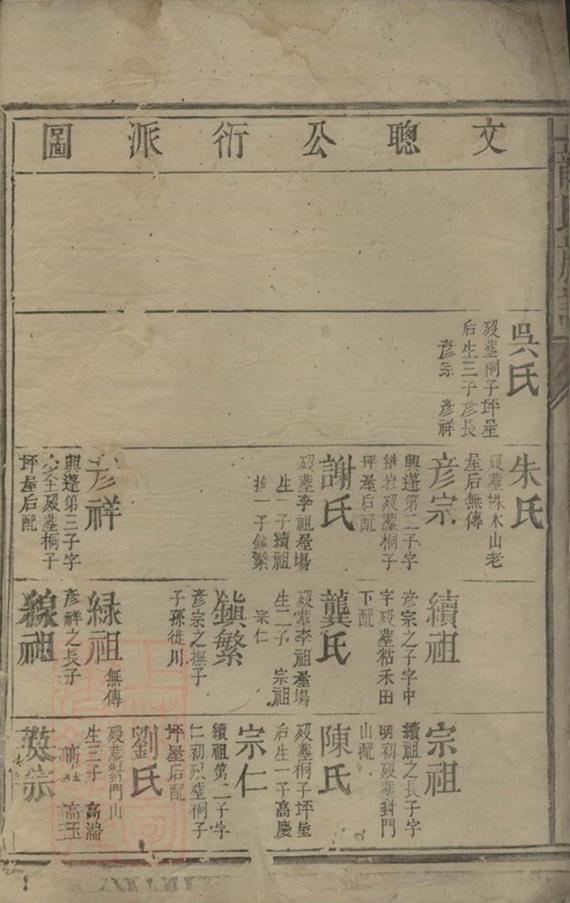 文聰公衍派圖
吳氏
殁塟桐子坪屋
后生三子彦長
彦宗　彦祥
朱氏
殁塟硃木山老
屋后無傳
彦宗
興蓬第二子字
殁塟桐子
坪屋后配
謝氏
殁塟李祖屋塲
生一子續祖
撫一子鎮繁
彦祥
興蓬第三子字
殁塟桐子
坪屋后配
續祖
彦宗之子字中
字殁塟粘禾田
下配
龔氏
殁塟李祖屋塲
生二子　宗祖
宗仁
鎮繁
彦宗之撫子
子孫徙川
緑祖
無傳
彦祥之長子
線祖
宗祖
續祖之長子字
明初殁塟封門
山配
陳氏
殁塟桐子坪屋
后生一子高慶
宗仁
續祖第二子字
仁初殁塟桐子
坪屋后配
劉氏
殁塟封門山
生三子　高瑞
高玉
英宗